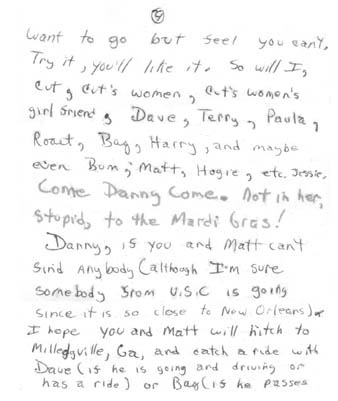 5
want to go but feel you can't.
Try it, you'll like it. So will I,
Cut, Cut's women, Cut's women's
girl friend, Dave, Terry, Paula,
Roact, Bag, Harry, and maybe
even Bum, Matt, Hogie, etc. Jessie.
Come Danny Come. Not in her,
stupid, to the Mardi Gras!
Danny, if you and Matt can't
find anybody (although I'm sure
somebody from U.S.C is going
since it is so close to New Orleans)
I hope you and Matt will hitch to
Milledgville, Ga, and catch a ride with
Dave (if he is going and driving or
has a ride) or Bag (if he passes